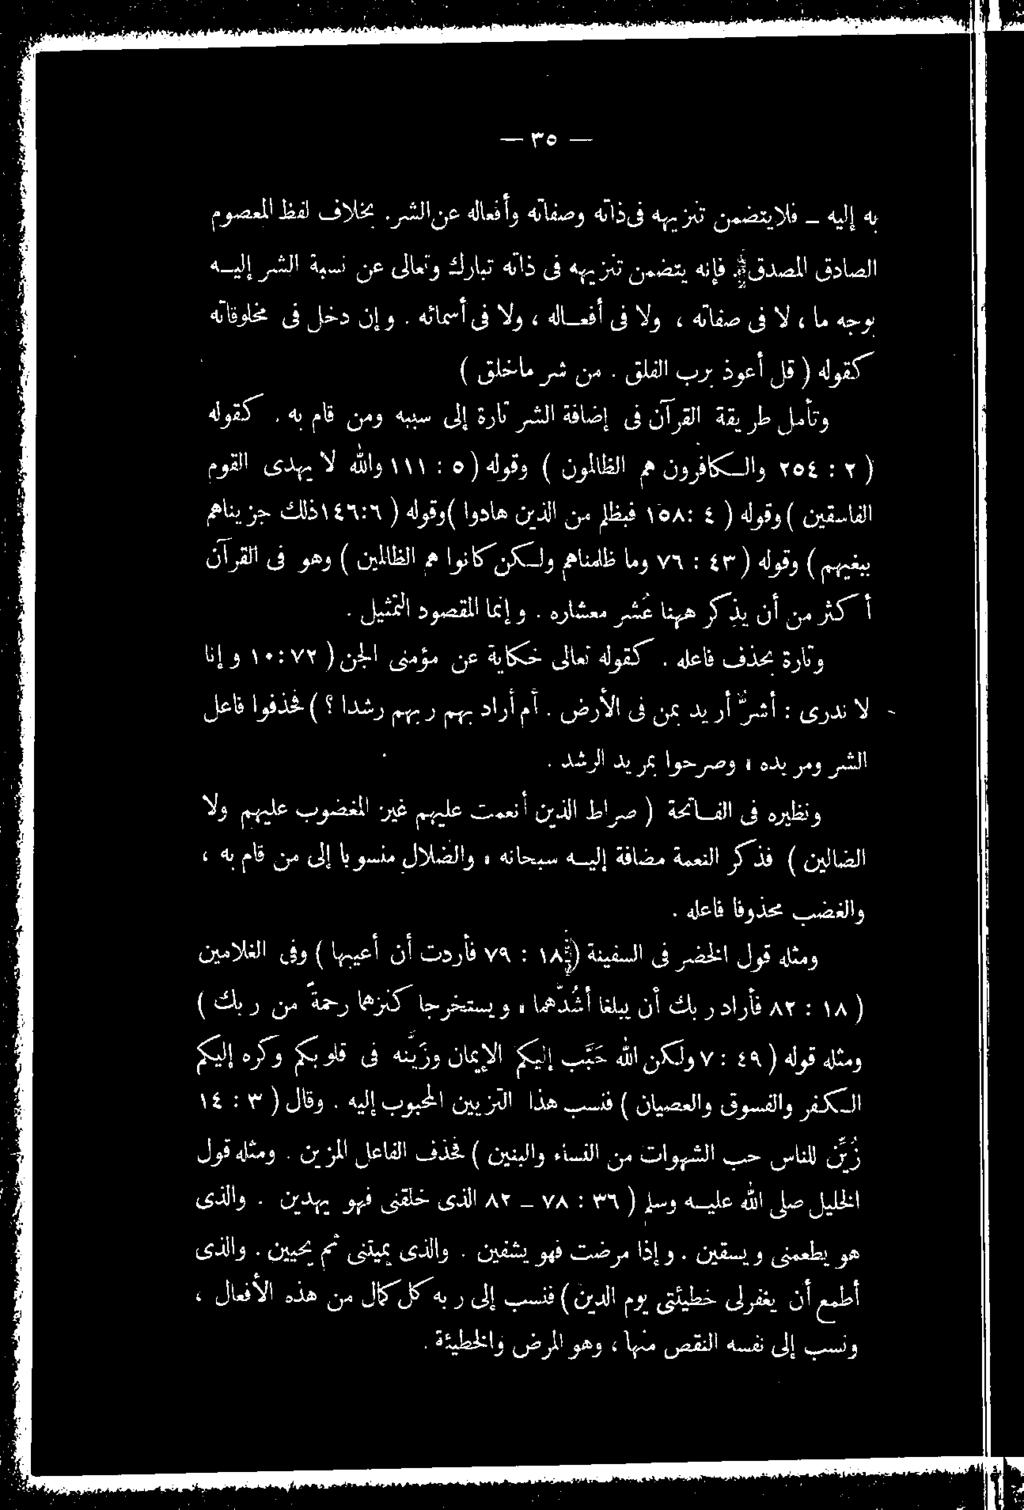 — ٣٥ —
به إليه _ فلا يتضمن تنزيهه فى ذاته وصفاته وأفعاله عن الشر. بخلاف لفظ المعصوم
الصادق المصدق. فإنه يتضمن تنزيهه فى ذاته تبارك وتعالى عن نسبة الشر إليه
بوجه ما ، لا فى صفاته ، ولا فى أفعاله ، ولا فى أسمائه . وإن دخل فى مخلوقاته
كقوله ( قل أعوذ برب الفلق . من شر ما خلق )
وتأمل طريقة القرآن فى إضافة الشر تارة إلى سببه ومن قام به . كقوله
( ٢ : ٢٥٤ والكافرون هم الظالمون ) وقوله ( ٥ : ١١١ والله لا يهدى القوم
الفاسقين ) وقوله ( ٤ : ١٥٨ فبظلم من الذين هادوا ) وقوله ( ٦:١٤٦ ذلك جزيناهم
ببغيهم ) وقوله ( ٤٣ : ٧٦ وما ظلمناهم ولكن كانوا هم الظالمين ) وهو فى القرآن
أكثر من أن يذكر ههنا عُشر معشاره . وإنما المقصود التمثيل .
وتارة بحذف فاعله . كقوله تعالى حكاية عن مؤمنى الجن ( ٧٢:١٠ وإنا
لا ندرى : أشرٌّ أريد بمن فى الأرض . أم أراد بهم ربهم رشدا ؟ ) فحذفوا فاعل
الشر ومريده ، وصرحوا بمريد الرشد .
ونظيره فى الفاتحة ( صراط الذين أنعمت عليهم غير المغضوب عليهم ولا
الضالين ) فذكر النعمة مضافة إليه سبحانه ، والضلال منسوبا إلى من قام به ،
والغضب محذوفا فاعله .
ومثله قول الخضر فى السفينة ( ١٨ : ٧٩ فأردت أن أعيبها ) وفى الغلامين
( ١٨ : ٨٢ فأراد ربك أن يبلغا أشُدّهما ، ويستخرجا كنزهما رحمةً من ربك )
ومثله قوله ( ٤٩ : ٧ ولكن الله حَبَّب إليكم الإيمان وزيَّنه فى قلوبكم وكره إليكم
الكفر والفسوق والعصيان ) فنسب هذا التزيين المحبوب إليه . وقال ( ٣ : ١٤
زُيِّن للناس حب الشهوات من النساء والبنين ) فحذف الفاعل المزين . ومثله قول
الخليل صلى الله عليه وسلم ( ٣٦ : ٧٨ _ ٨٢ الذى خلقنى فهو يهدين . والذى
هو يطعمنى ويسقين . وإذا مرضت فهو يشفين . والذى يميتنى ثم يحيين . والذى
أطمع أن يغفر لى خطيئتى يوم الدين ) فنسب إلى ربه كل كمال من هذه الأفعال ،
ونسب إلى نفسه النقص منها ، وهو المرض والخطيئة .